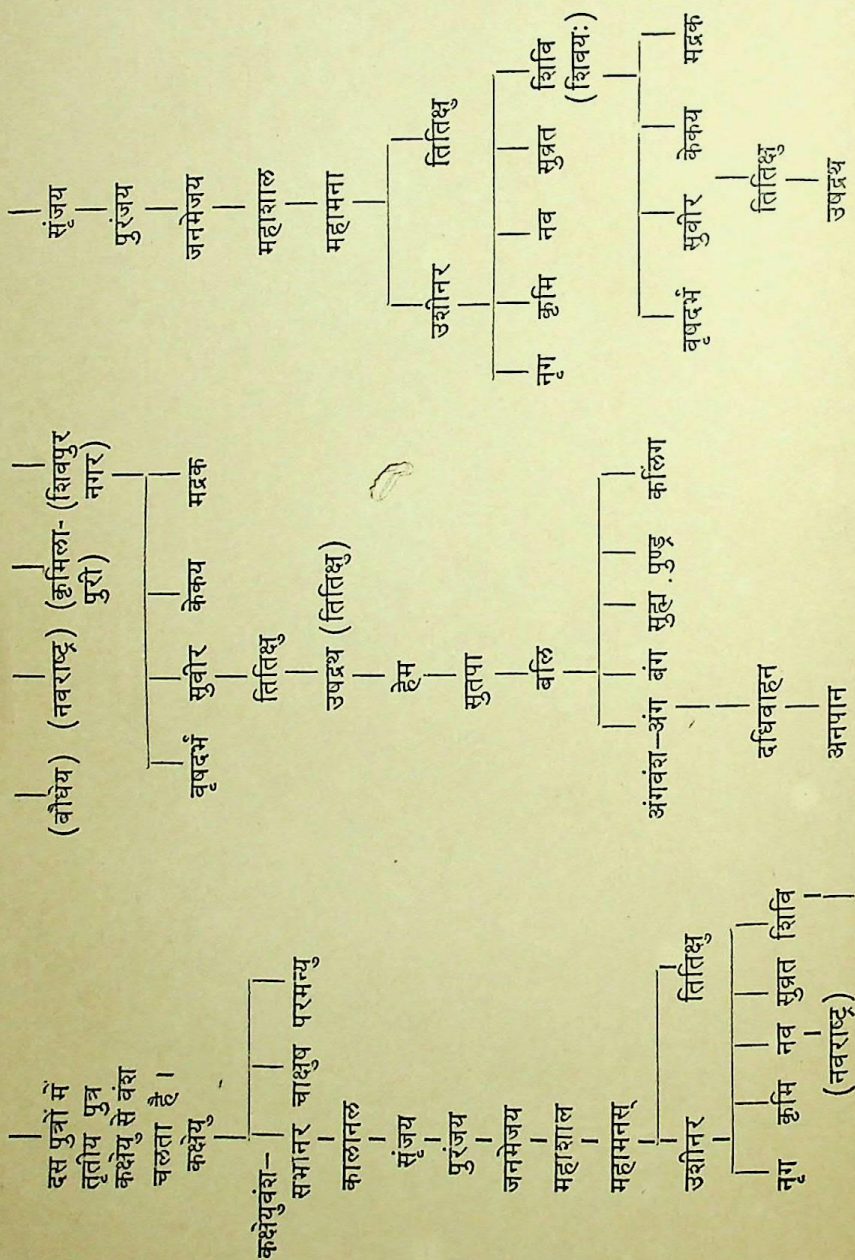 दस पुत्रों में
तृतीय पुत्र
कक्षेयु से वंश
चलता है ।
कक्षेयु
कक्षेयुवंश–
सभानर चाक्षुष परमन्यु
कालानल
सृंजय
पुरंजय
जनमेजय
महाशाल
महामनस्
उशीनर तितिक्षु
नृग कृमि नव सुव्रत शिवि
(नवराष्ट्र)
(बौधेय) (नवराष्ट्र) (कृमिला- (शिवपुर
पुरी) नगर)
वृषदर्भ सुवीर केकय मद्रक
तितिक्षु
उषद्रथ (तितिक्षु)
हेम
सुतपा
बलि
अंगवंश–अंग बंग सुह्म . पुण्ड्र कलिंग
दधिवाहन
अनपान
सृंजय
पुरंजय
जनमेजय
महाशाल
महामना
उशीनर तितिक्षु
नृग कृमि नव सुव्रत शिवि
(शिवयः)
वृषदर्भ सुवीर केकय मद्रक
तितिक्षु
उषद्रथ